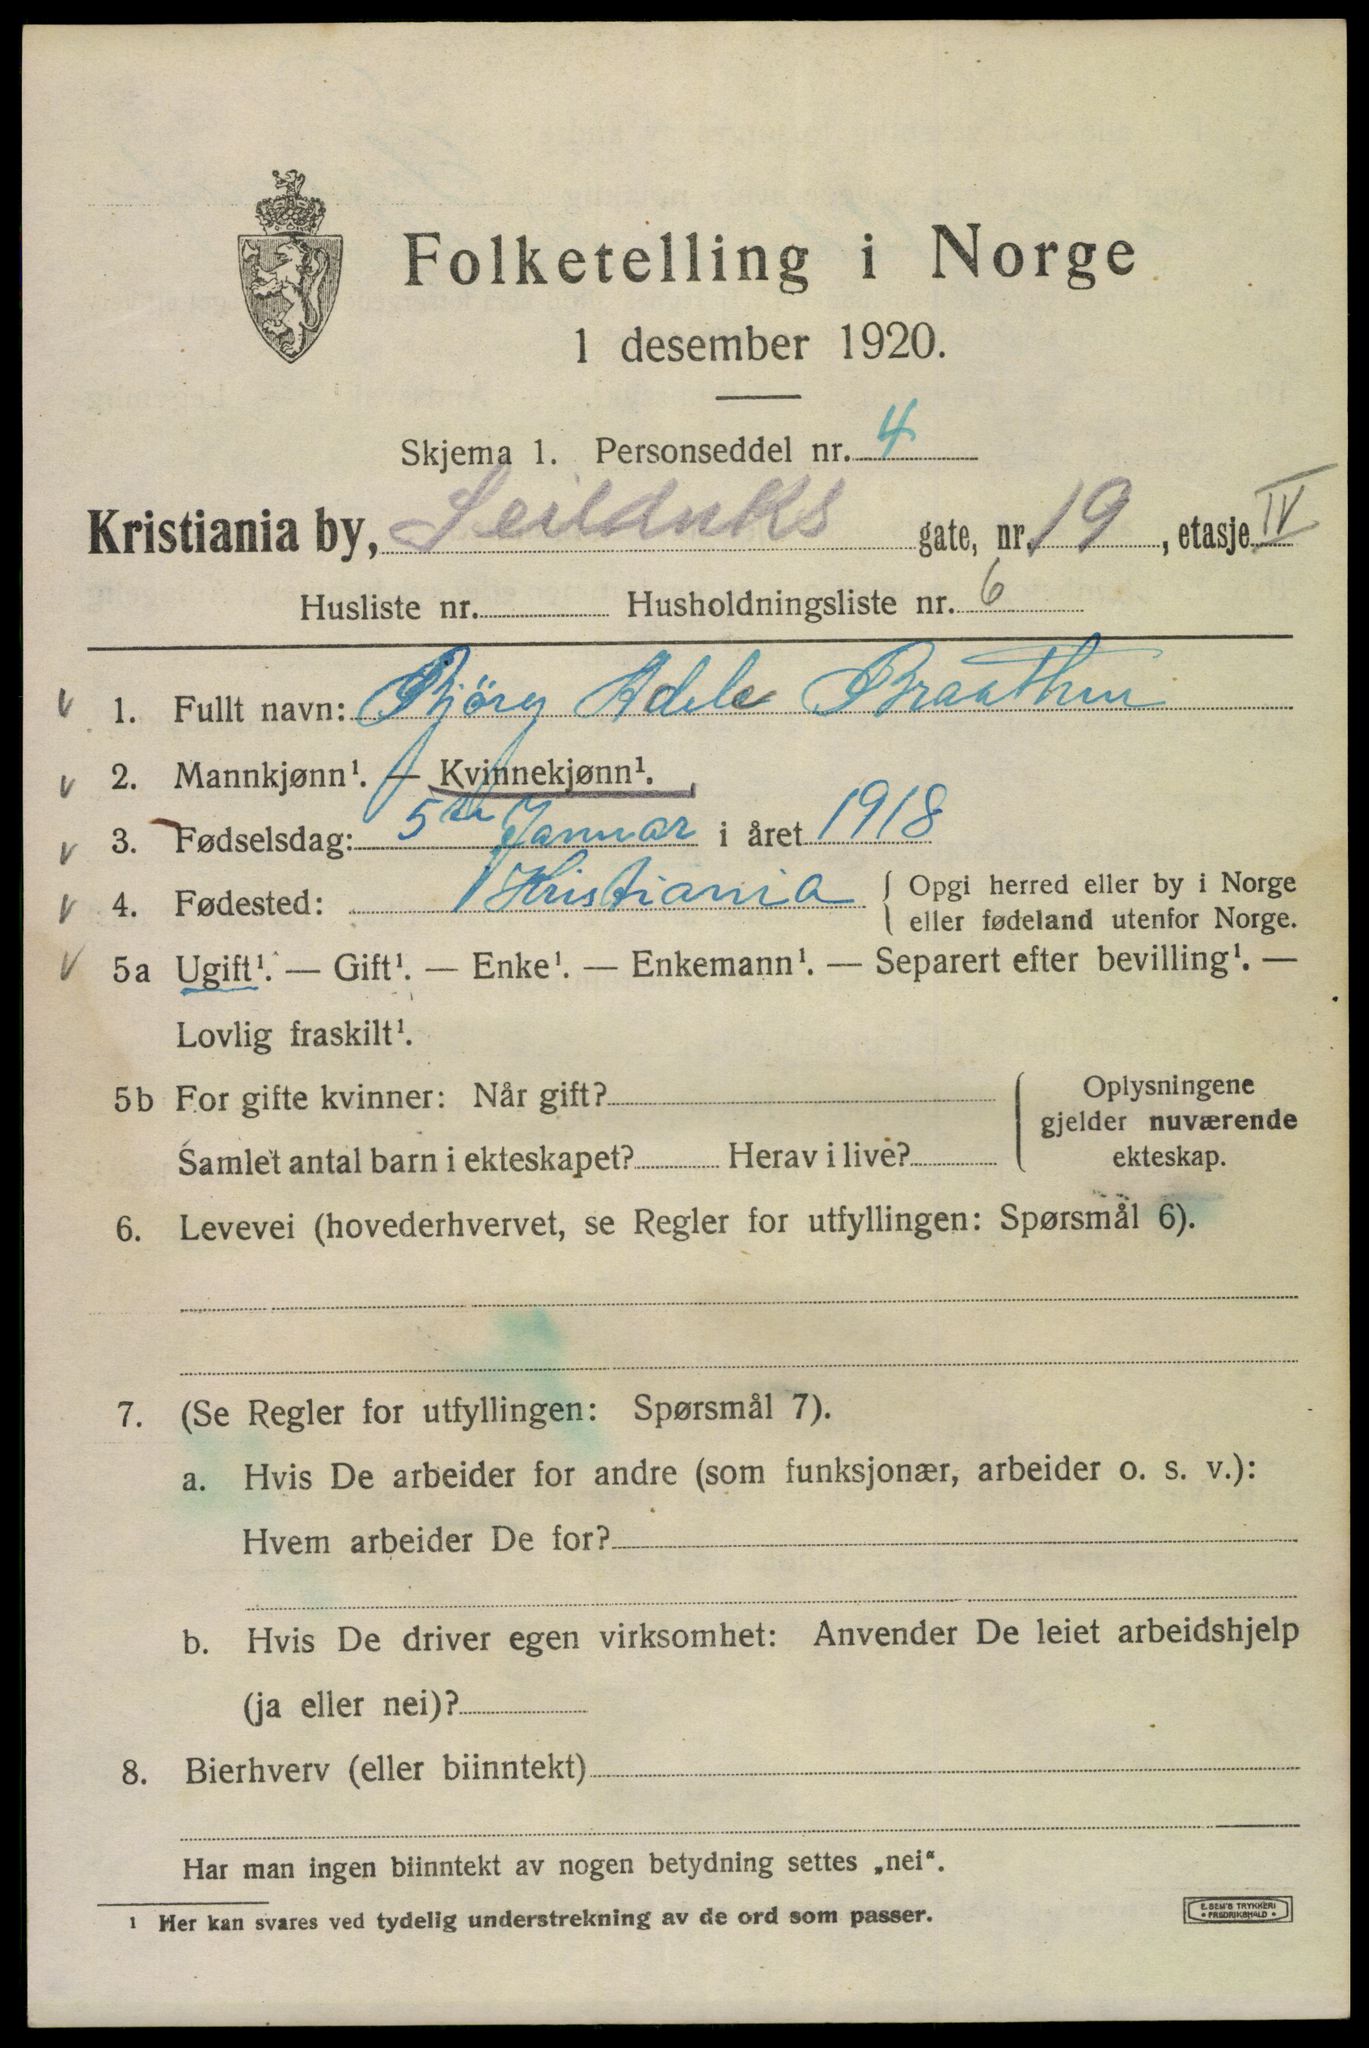 Folketelling i Norge
1 desember 1920.
Skjema 1. Personseddel nr. 4
Kristiania by, Seilduks gate, nr. 19, etasje IV
Husliste nr. Husholdningsliste nr. 6
1. Fullt navn: Björg Adele Braathen
2. Mannkjønn¹. — Kvinnekjønn¹.
3. Fødselsdag: 5te Januar i året 1918
4. Fødested: Kristiania { Opgi herred eller by i Norge
eller fødeland utenfor Norge.
5a Ugift¹. — Gift¹. — Enke¹. — Enkemann¹. — Separert efter bevilling¹. —
Lovlig fraskilt¹.
5b For gifte kvinner: Når gift?
Samlet antal barn i ekteskapet? Herav i live?
Oplysningene
gjelder nuværende
ekteskap.
6. Levevei (hovederhvervet, se Regler for utfyllingen: Spørsmål 6).
7. (Se Regler for utfyllingen: Spørsmål 7).
a. Hvis De arbeider for andre (som funksjonær, arbeider o. s. v.):
Hvem arbeider De for?
b. Hvis De driver egen virksomhet: Anvender De leiet arbeidshjelp
(ja eller nei)?
8. Bierhverv (eller biinntekt)
Har man ingen biinntekt av nogen betydning settes „nei“.
¹ Her kan svares ved tydelig understrekning av de ord som passer.
E. SEM'S TRYKKERI
• FREDRIKSHALD •